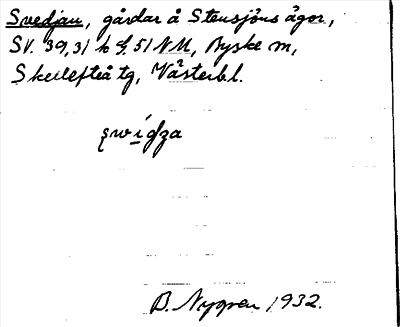 Svedjan, gårdar å Stensjöns ägor,
SV. 39,31 h 51 NU, Byske sn,
Skellefteå tg, Västerbl.
B. Nygren 1932.